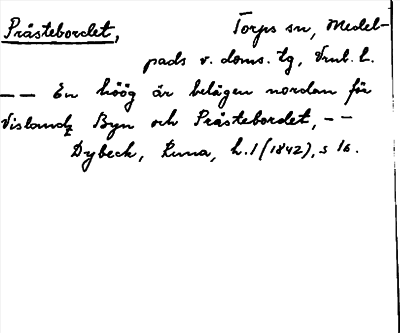 Prästebordet, Torps sn, Medel-
pads v. doms. tg, Vnl. l.
–– En höög är belägen nordan för
Vislandz Byn och Prästebordet, ––
Dybeck, Runa, h. 1 (1842), s 16.